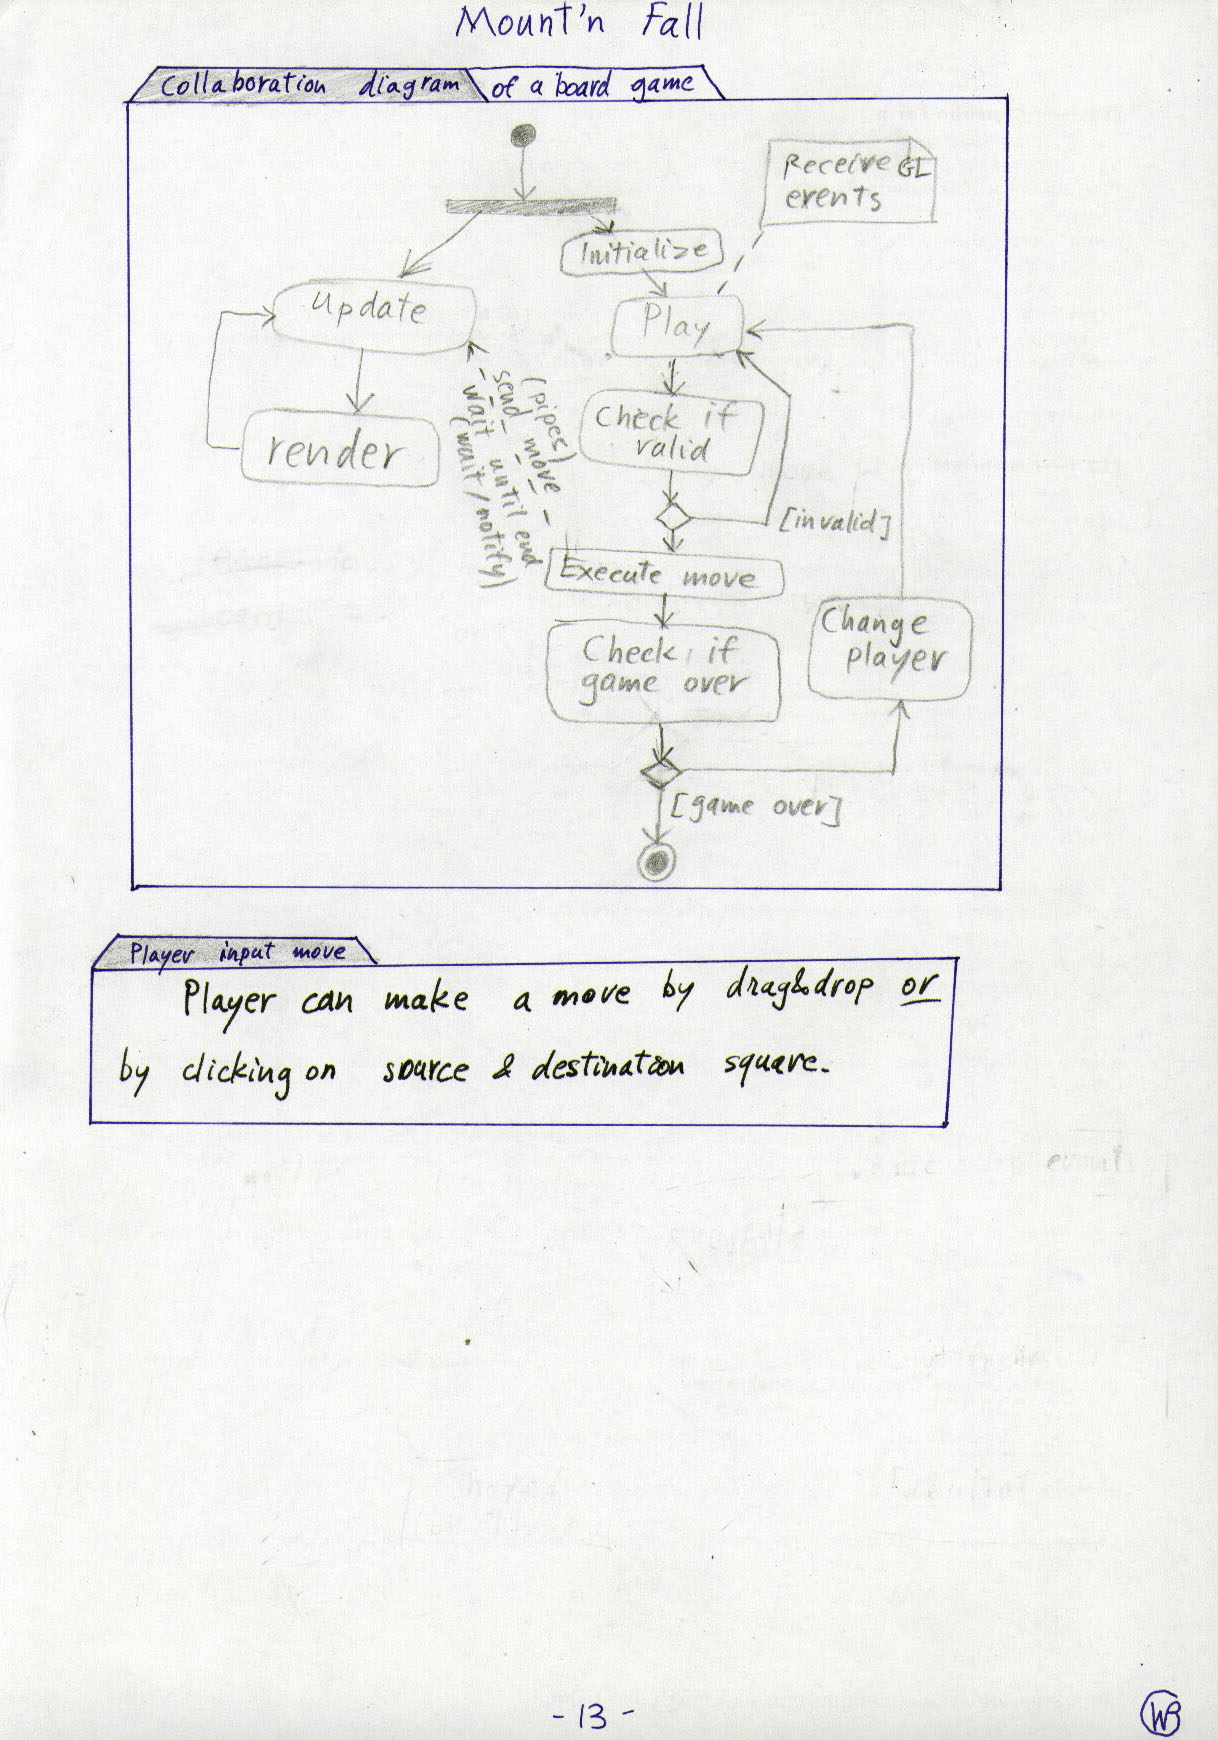 Mount'n Fall
Collaboration diagram of a board game
Receive GL
events
Initialize
Update
Play
render
(pipes)
send move
wait until end
(wait/notify)
Check if
valid
[invalid]
Execute move
Change
player
Check if
game over
[game over]
Player input move
Player can make a move by drag&drop or
by clicking on source & destination square.
- 13 -
WB